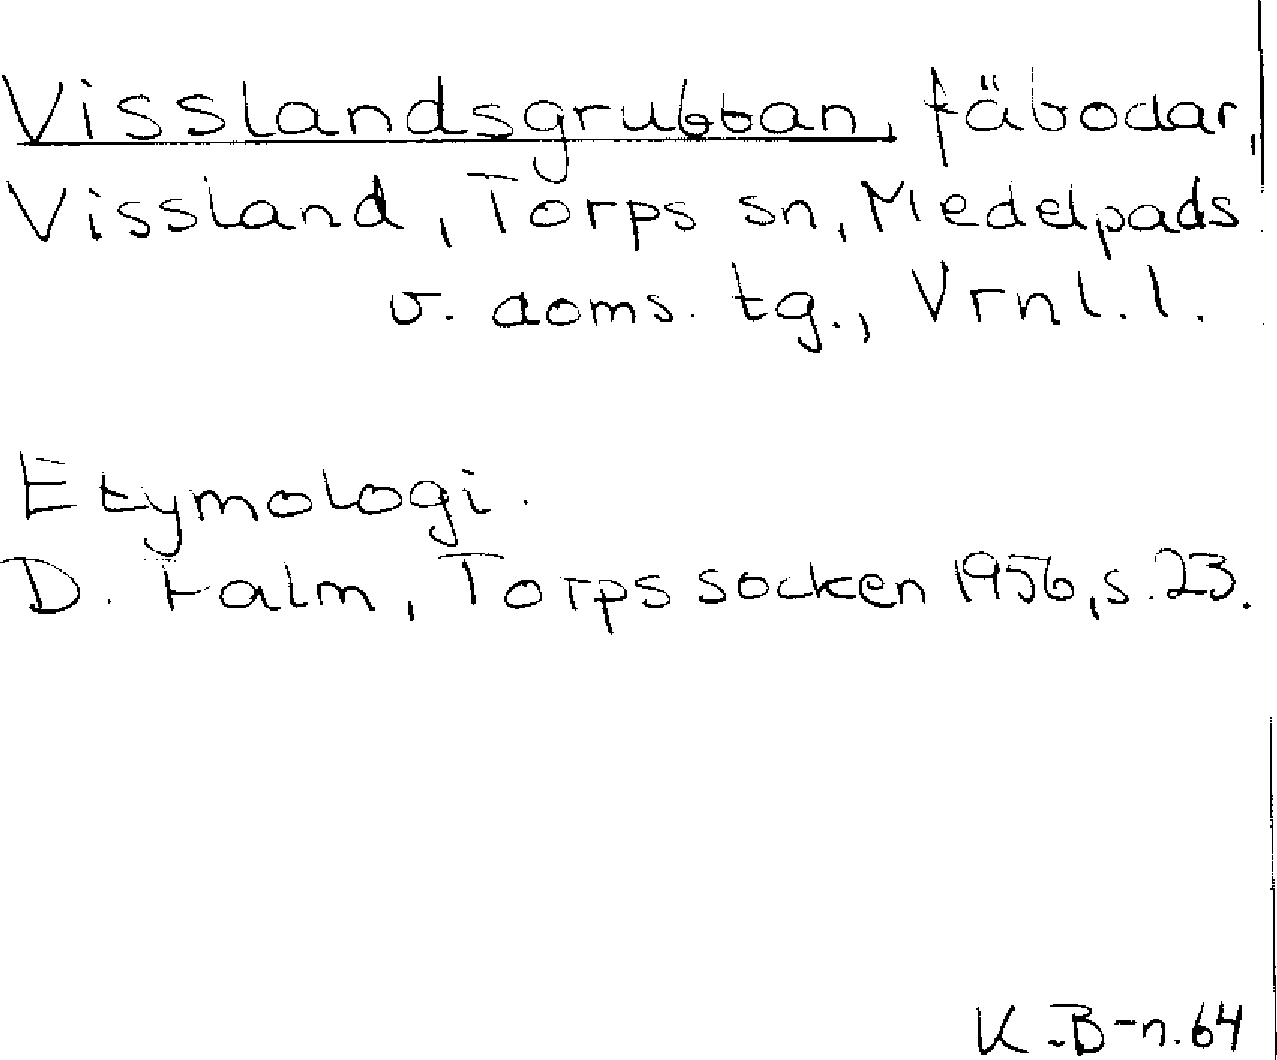 Visslandsgrubban, fäbodar,
Vissland, Torps sn, Medelpads
v. doms. tg., Vrnl. l.
Etymologi.
D. Halm, Torps socken 1956, s. 23.
K.B-n. 64